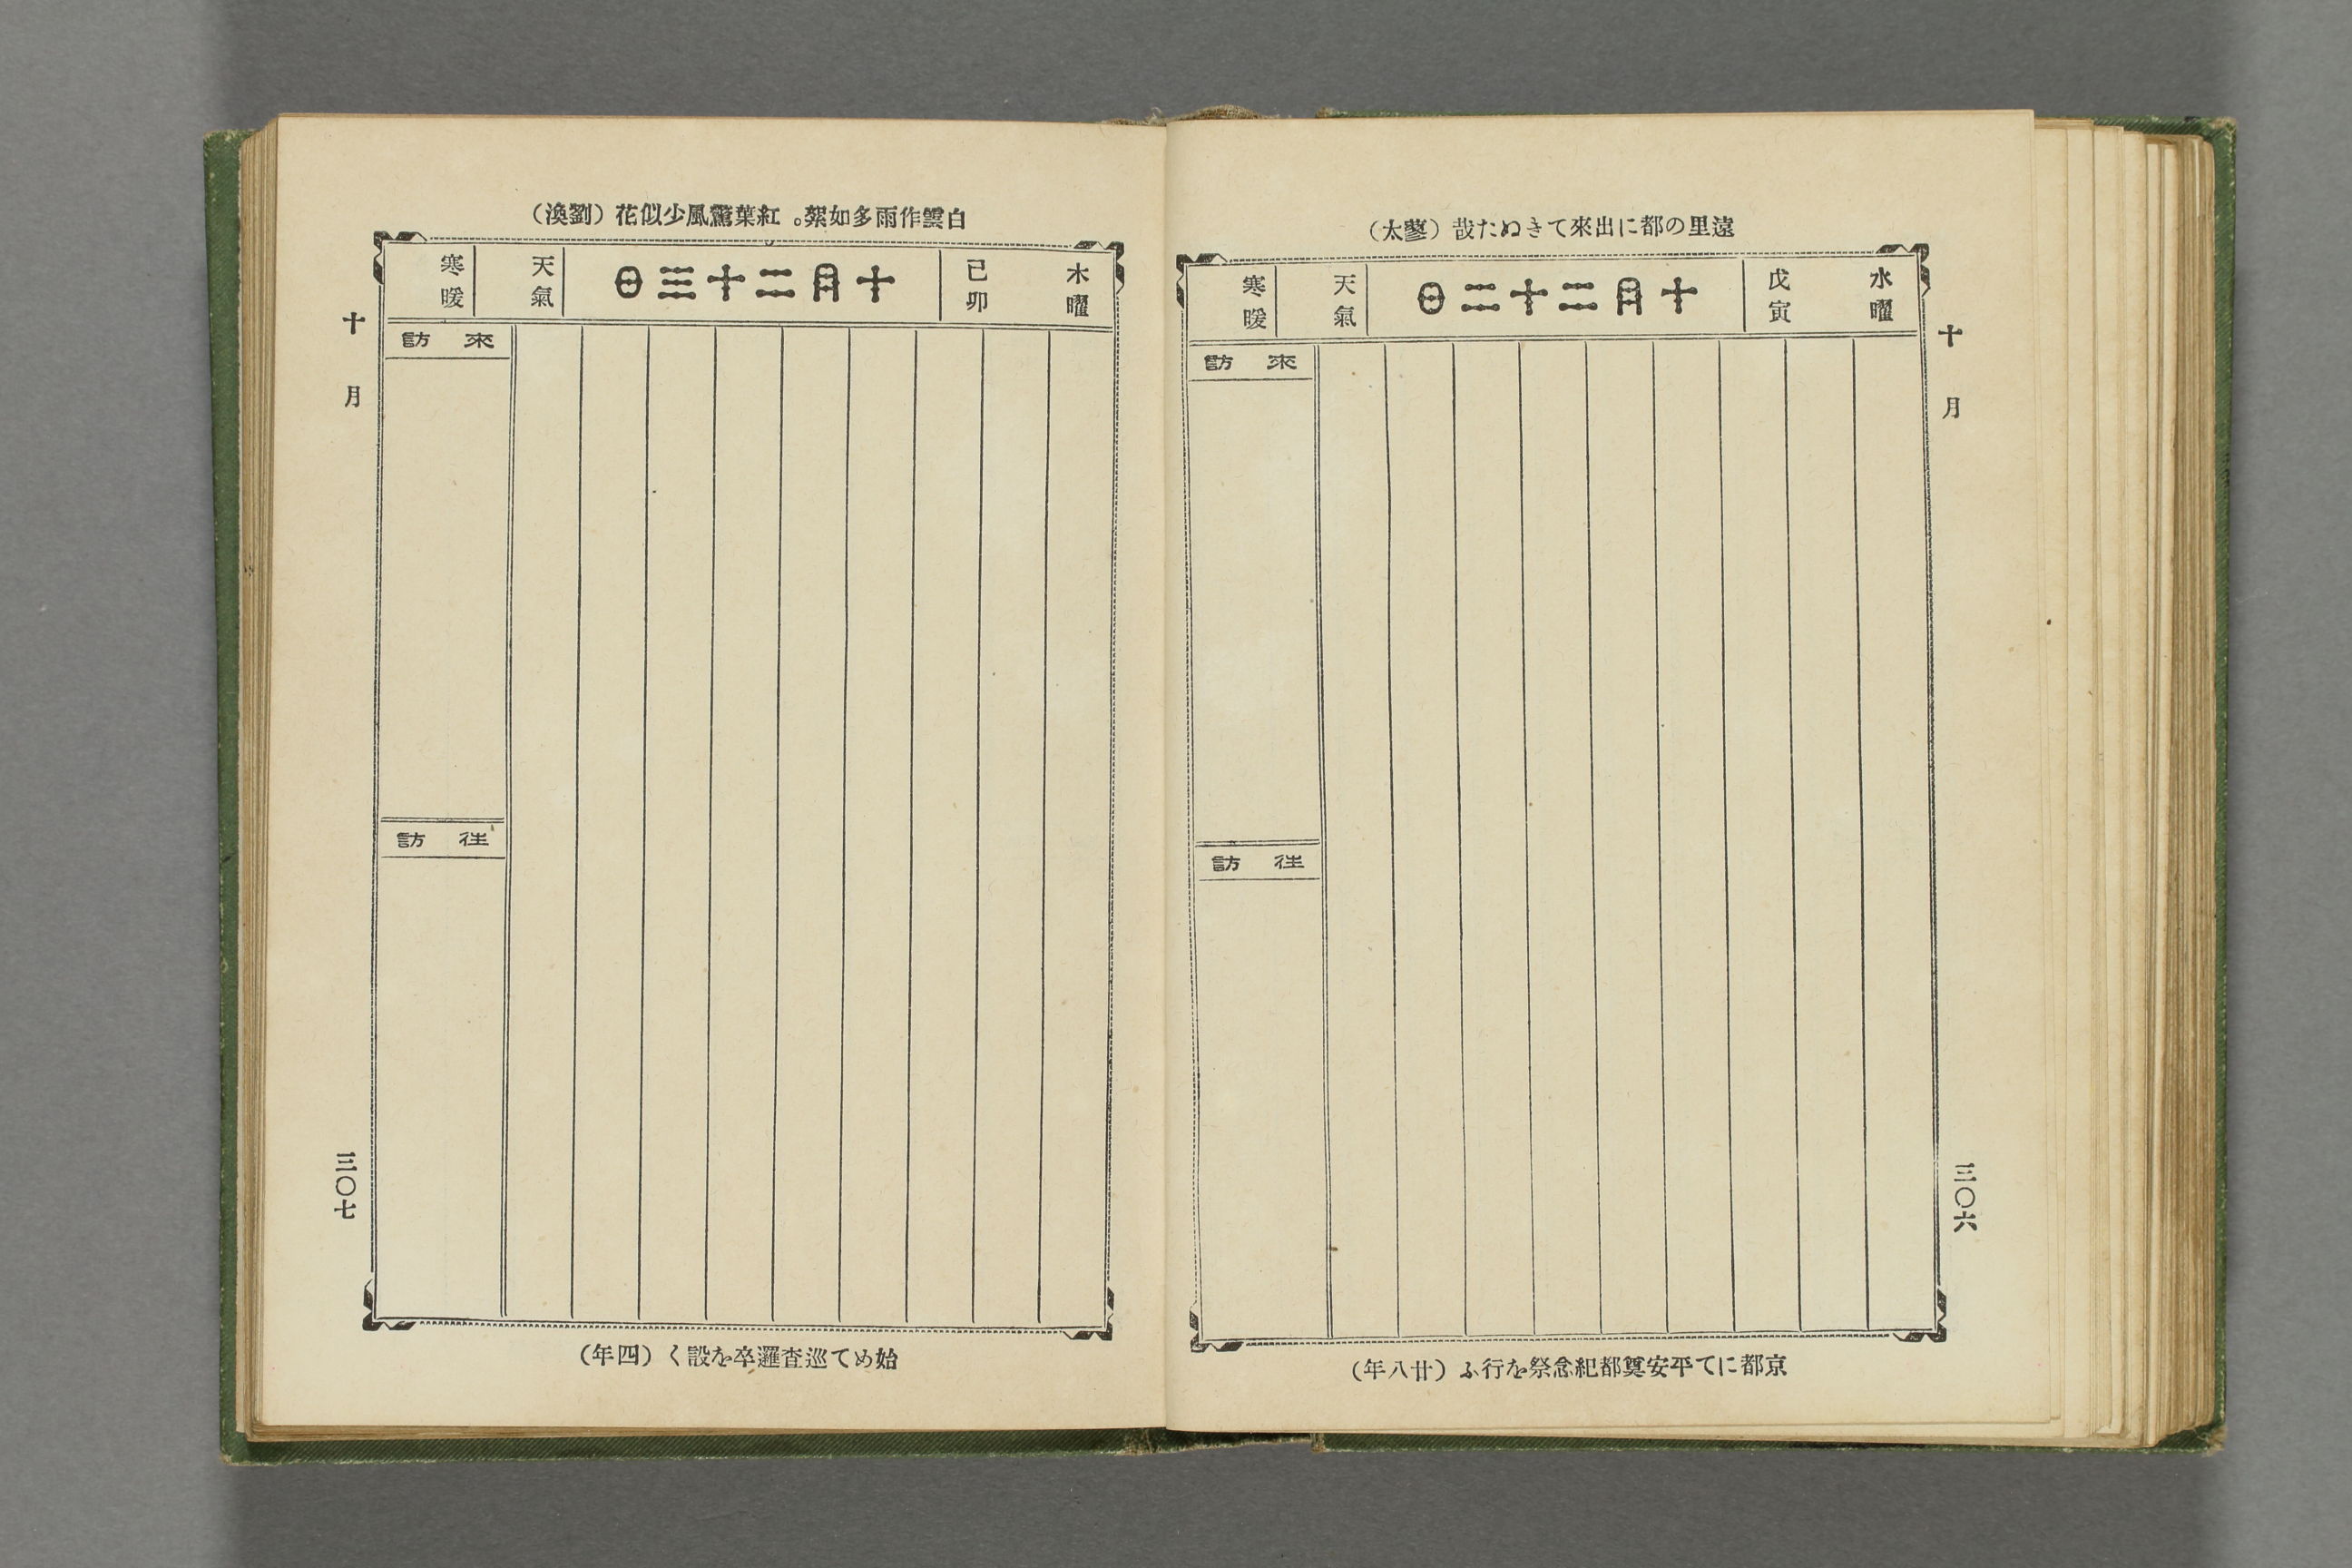 遠里の都に出來てきぬた哉(蓼太)
水曜
戊寅
十月二十二日
天氣
寒暖
來訪
往訪
十月
三〇六
京都にて平安奠都紀念祭を行ふ(廿八年)
白雲作雨多如絮。紅葉驚風少似花(劉渙)
木曜
己卯
十月二十三日
天氣
寒暖
來訪
往訪
十月
三〇七
始めて巡査邏卒を設く(四年)